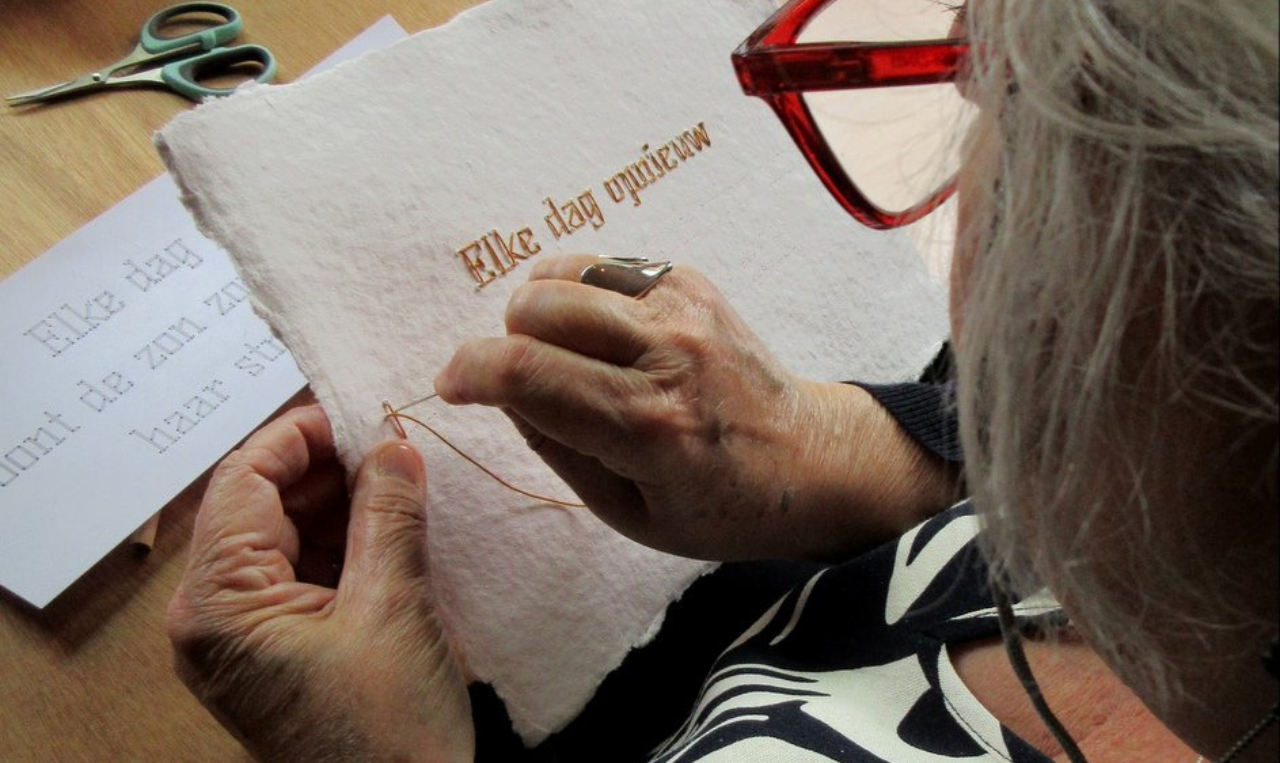 Elke dag opnieuw
Elke dag
oont de zon zo
haar str